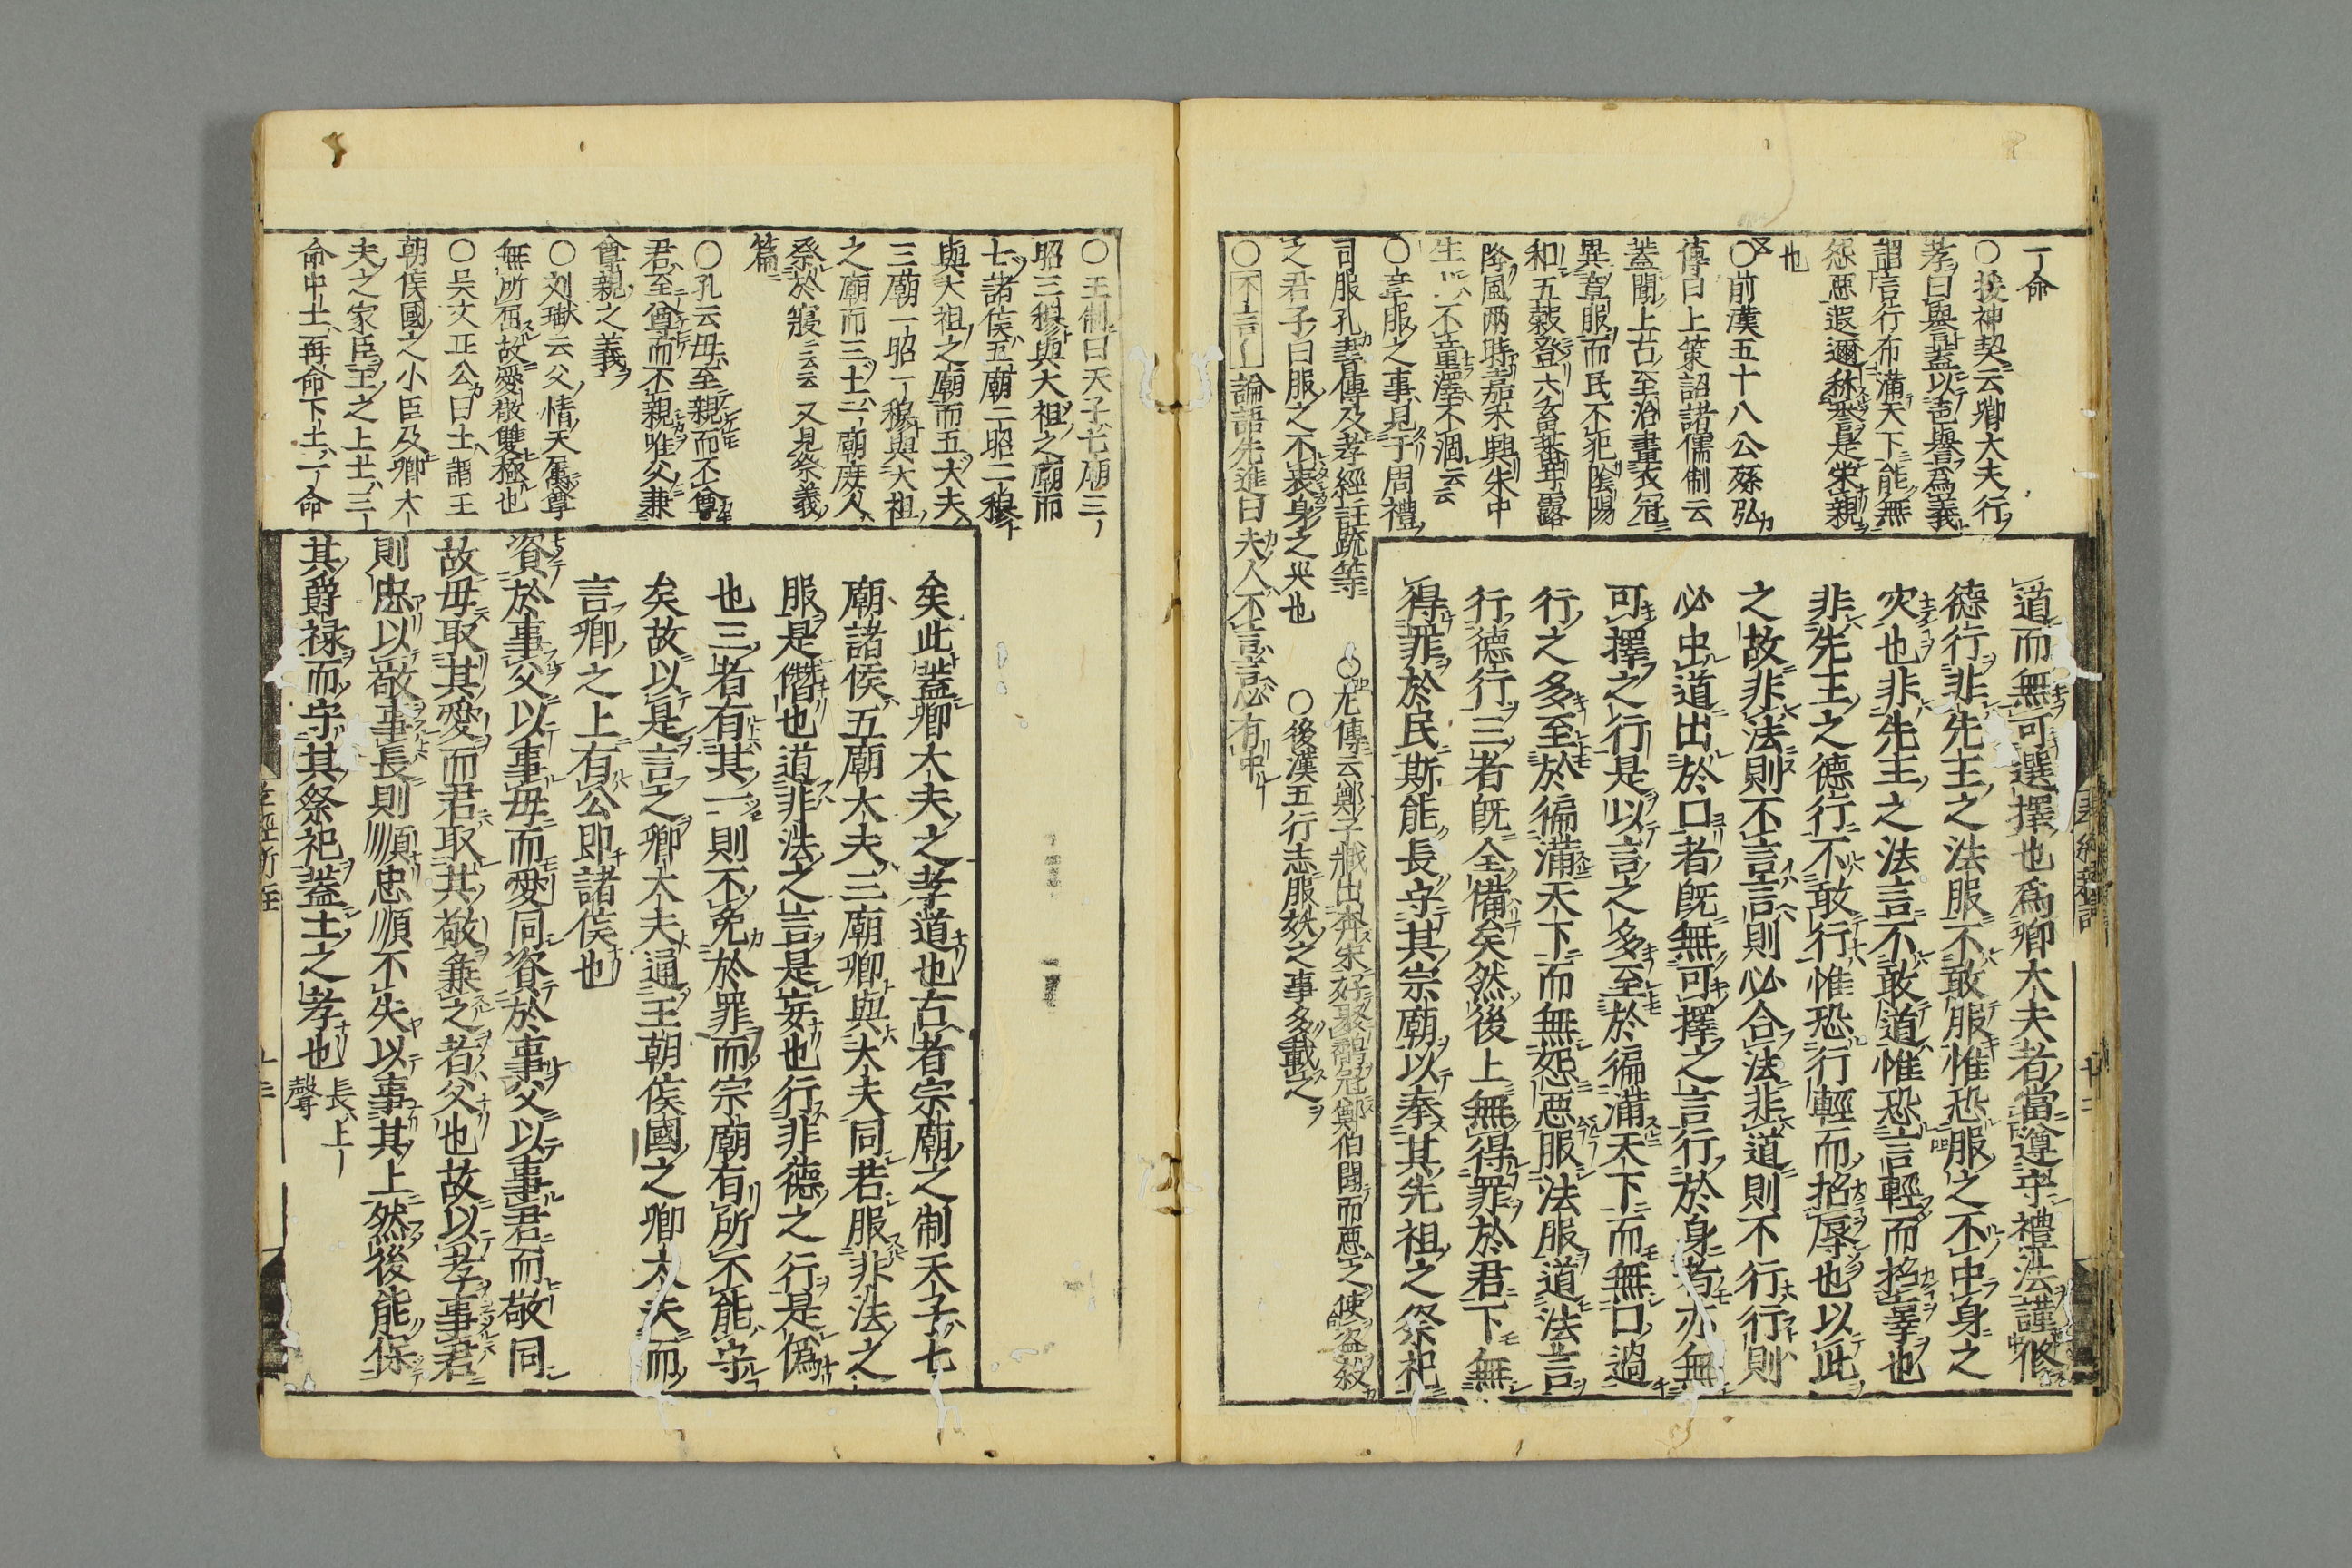 一命
○援神契云卿大夫行
孝曰譽蓋以聲譽爲義
謂言行布滿天下能無
怨惡遐邇稱譽是榮親
也
○前漢五十八公孫弘
傳曰上策詔諸儒制云
蓋聞上古至治畫衣冠
異章服而民不犯陰陽
和五穀登六畜蕃甘露
降風雨時嘉禾興朱中
生 不童澤不涸云云
○章服之事見于周禮
司服孔書傳及孝經註疏等
○左傳云鄭子臧出奔宋好聚鷸冠鄭伯聞而惡之使盗殺
之君子曰服之不衷身之災也
○後漢五行志服妖之事多載之
○不言 論語先進曰夫人不言言必有中
道而無可選擇也爲卿大夫者當遵守禮法謹修
德行非先王之法服不敢服惟恐服之不中身之
灾也非先王之法言不敢道惟恐言輕而招辜也
非先王之德行不敢行惟恐行輕而招辱也以此
之故非法則不言言則必合法非道則不行行則
必中道出於口者既無可擇之言行於身者亦無
可擇之行是以言之多至於徧滿天下而無口過
行之多至於徧滿天下而無怨惡服法服道法言
行德行三者既全備矣然後上無得罪於君下無
得罪於民斯能長守其宗廟以奉其先祖之祭祀
○王制曰天子七廟三
昭三穆與大祖之廟而
七諸侯五廟二昭二穆
與大祖之廟而五大夫
三廟一昭一穆與大祖
之廟而三士一廟庶人
祭於寢云云又見祭義
篇
○孔云母至親而不尊
君至尊而不親唯父兼
尊親之義
○刘瓛云父情天屬尊
無所屈故愛敬雙極也
○吳文正公曰士謂王
朝侯國之小臣及卿大
夫之家臣王之上士三
命中士再命下士一命
矣此蓋卿大夫之孝道也古者宗廟之制天子七
廟諸侯五廟大夫三廟卿與大夫同若服非法之
服是僭也道非法之言是妄也行非德之行是僞
也三者有其一則不免於罪而宗廟有所不能守
矣故以是言之卿大夫通王朝侯國之卿大夫而
言卿之上有公即諸侯也
資於事父以事母而愛同資於事父以事君而敬同
故母取其愛而君取其敬兼之者父也故以孝事君
則忠以敬事長則順忠順不失以事其上然後能保
其爵禄而守其祭祀蓋士之孝也
長上
聲